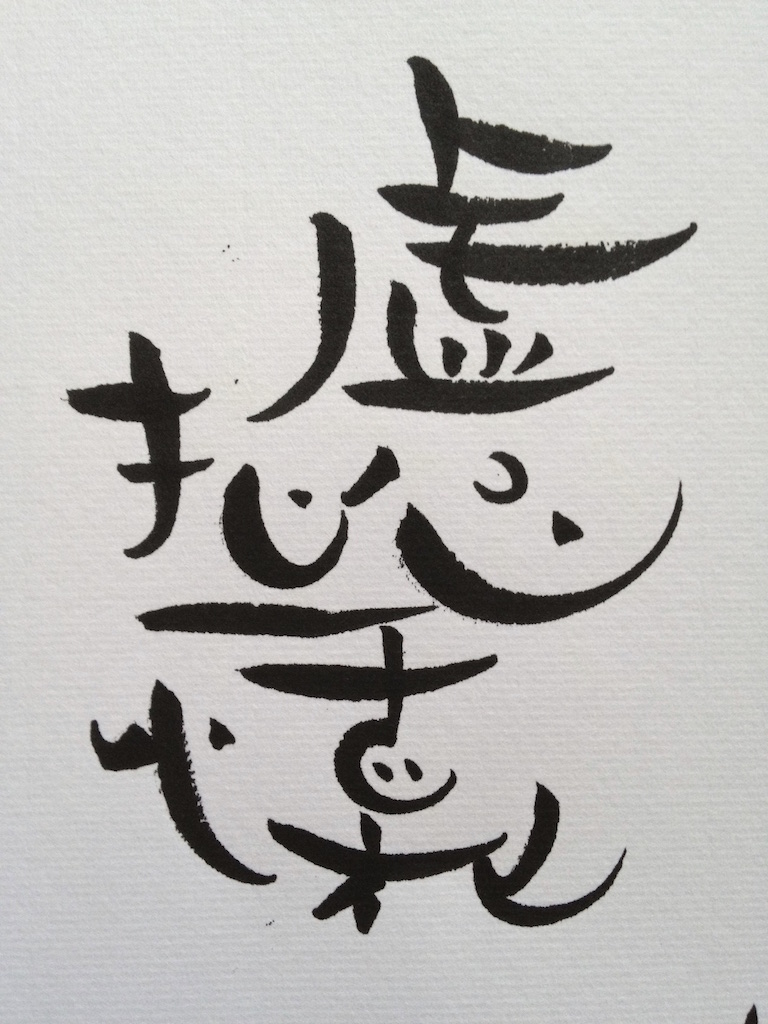 虚心
坦懐